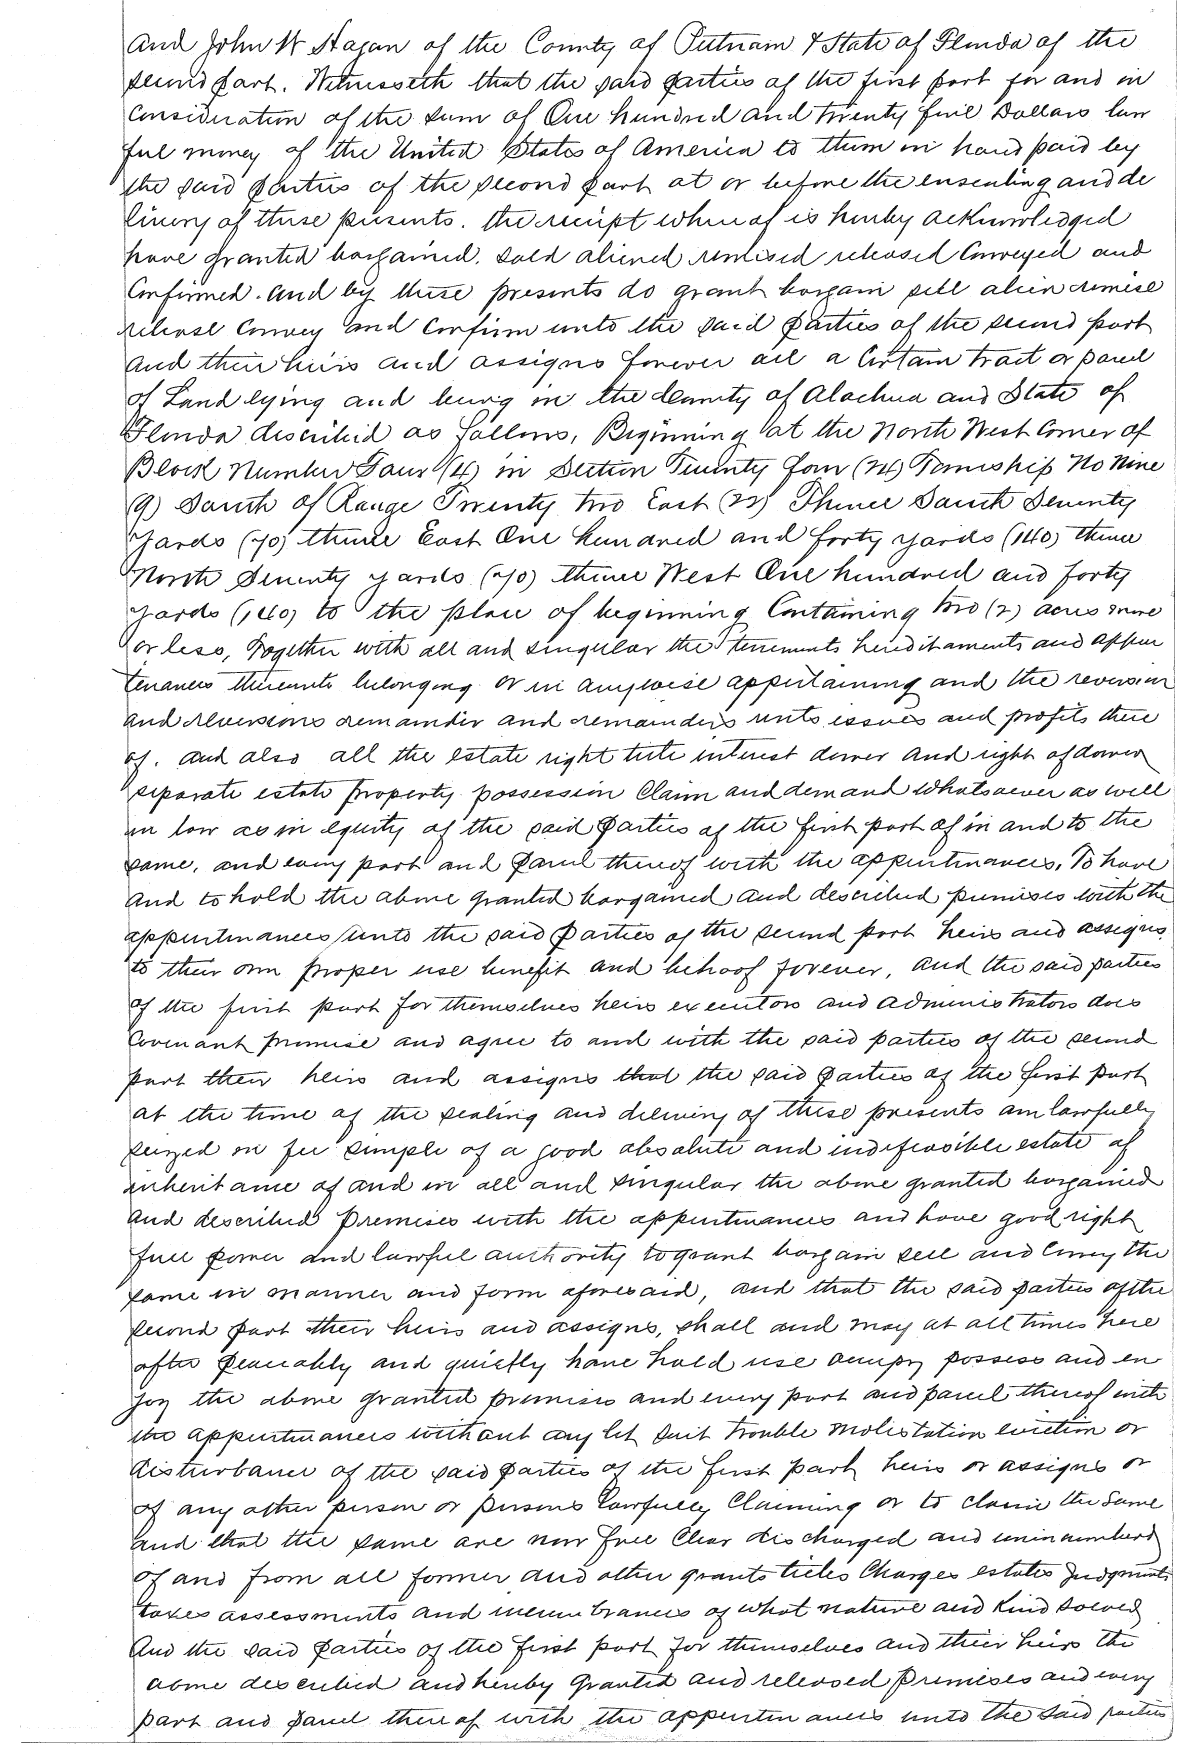 and John W Hagan of the County of Putnam & State of Florida of the
second part. Witnesseth that the said parties of the first part for and in
consideration of the sum of One hundred and twenty five Dollars law
ful money of the United States of America to them in hand paid by
the said parties of the second part at or before the ensealing and de
livery of these presents. the receipt whereof is hereby acknowledged
have granted bargained. sold aliened remised released Conveyed and
Confirmed. and by these presents do grant bargain sell alien remise
release convey and confirm unto the said parties of the second part
and their heirs and assigns forever all a Certain tract or parcel
of Land lying and being in the County of Alachua and State of
Florida described as follows, Beginning at the North West Corner of
Block Number Four (4) in Section Twenty four (24) Township No Nine
(9) South of Range Twenty two East (22) Thence South Seventy
Yards (70) thence East One hundred and forty yards (140) thence
North Seventy yards (70) thence West One hundred and forty
yards (140) to the place of beginning Containing two (2) acres more
or less, Together with all and singular the tenements hereditaments and appur
tenances thereunto belonging or in anywise appertaining and the reversion
and reversions remainder and remainders rents issues and profits there
of. and also all the estate right title interest dower and right of dower
separate estate property possession Claim and demand whatsoever as well
in law as in equity of the said parties of the first part of in and to the
same, and every part and parcel thereof with the appurtenances. To have
and to hold the above granted bargained and described premises with the
appurtenances unto the said parties of the second part heirs and assigns
to their own proper use benefit and behoof forever, and the said parties
of the first part for themselves heirs executors and administrators does
Covenant promise and agree to and with the said parties of the second
part their heirs and assigns that the said parties of the first part
at the time of the sealing and delivery of these presents am lawfully
seized in fee simple of a good absolute and indefeasible estate of
inheritance of and in all and singular the above granted bargained
and described premises with the appurtenances and have good right
full power and lawful authority to grant bargain sell and convey the
same in manner and form aforesaid, and that the said parties of the
second part their heirs and assigns, shall and may at all times here
after peaceably and quietly have hold use occupy possess and en
joy the above granted premises and every part and parcel thereof with
the appurtenances without any let suit trouble molestation eviction or
disturbance of the said parties of the first part heirs or assigns or
of any other person or persons lawfully Claiming or to claim the same
and that the same are now free Clear discharged and unincumbered
of and from all former and other grants titles Charges estates Judgments
taxes assessments and incumbrances of what nature and kind soever
And the said parties of the first part for themselves and their heirs the
above described and hereby granted and released premises and every
part and parcel thereof with the appurtenances unto the said parties